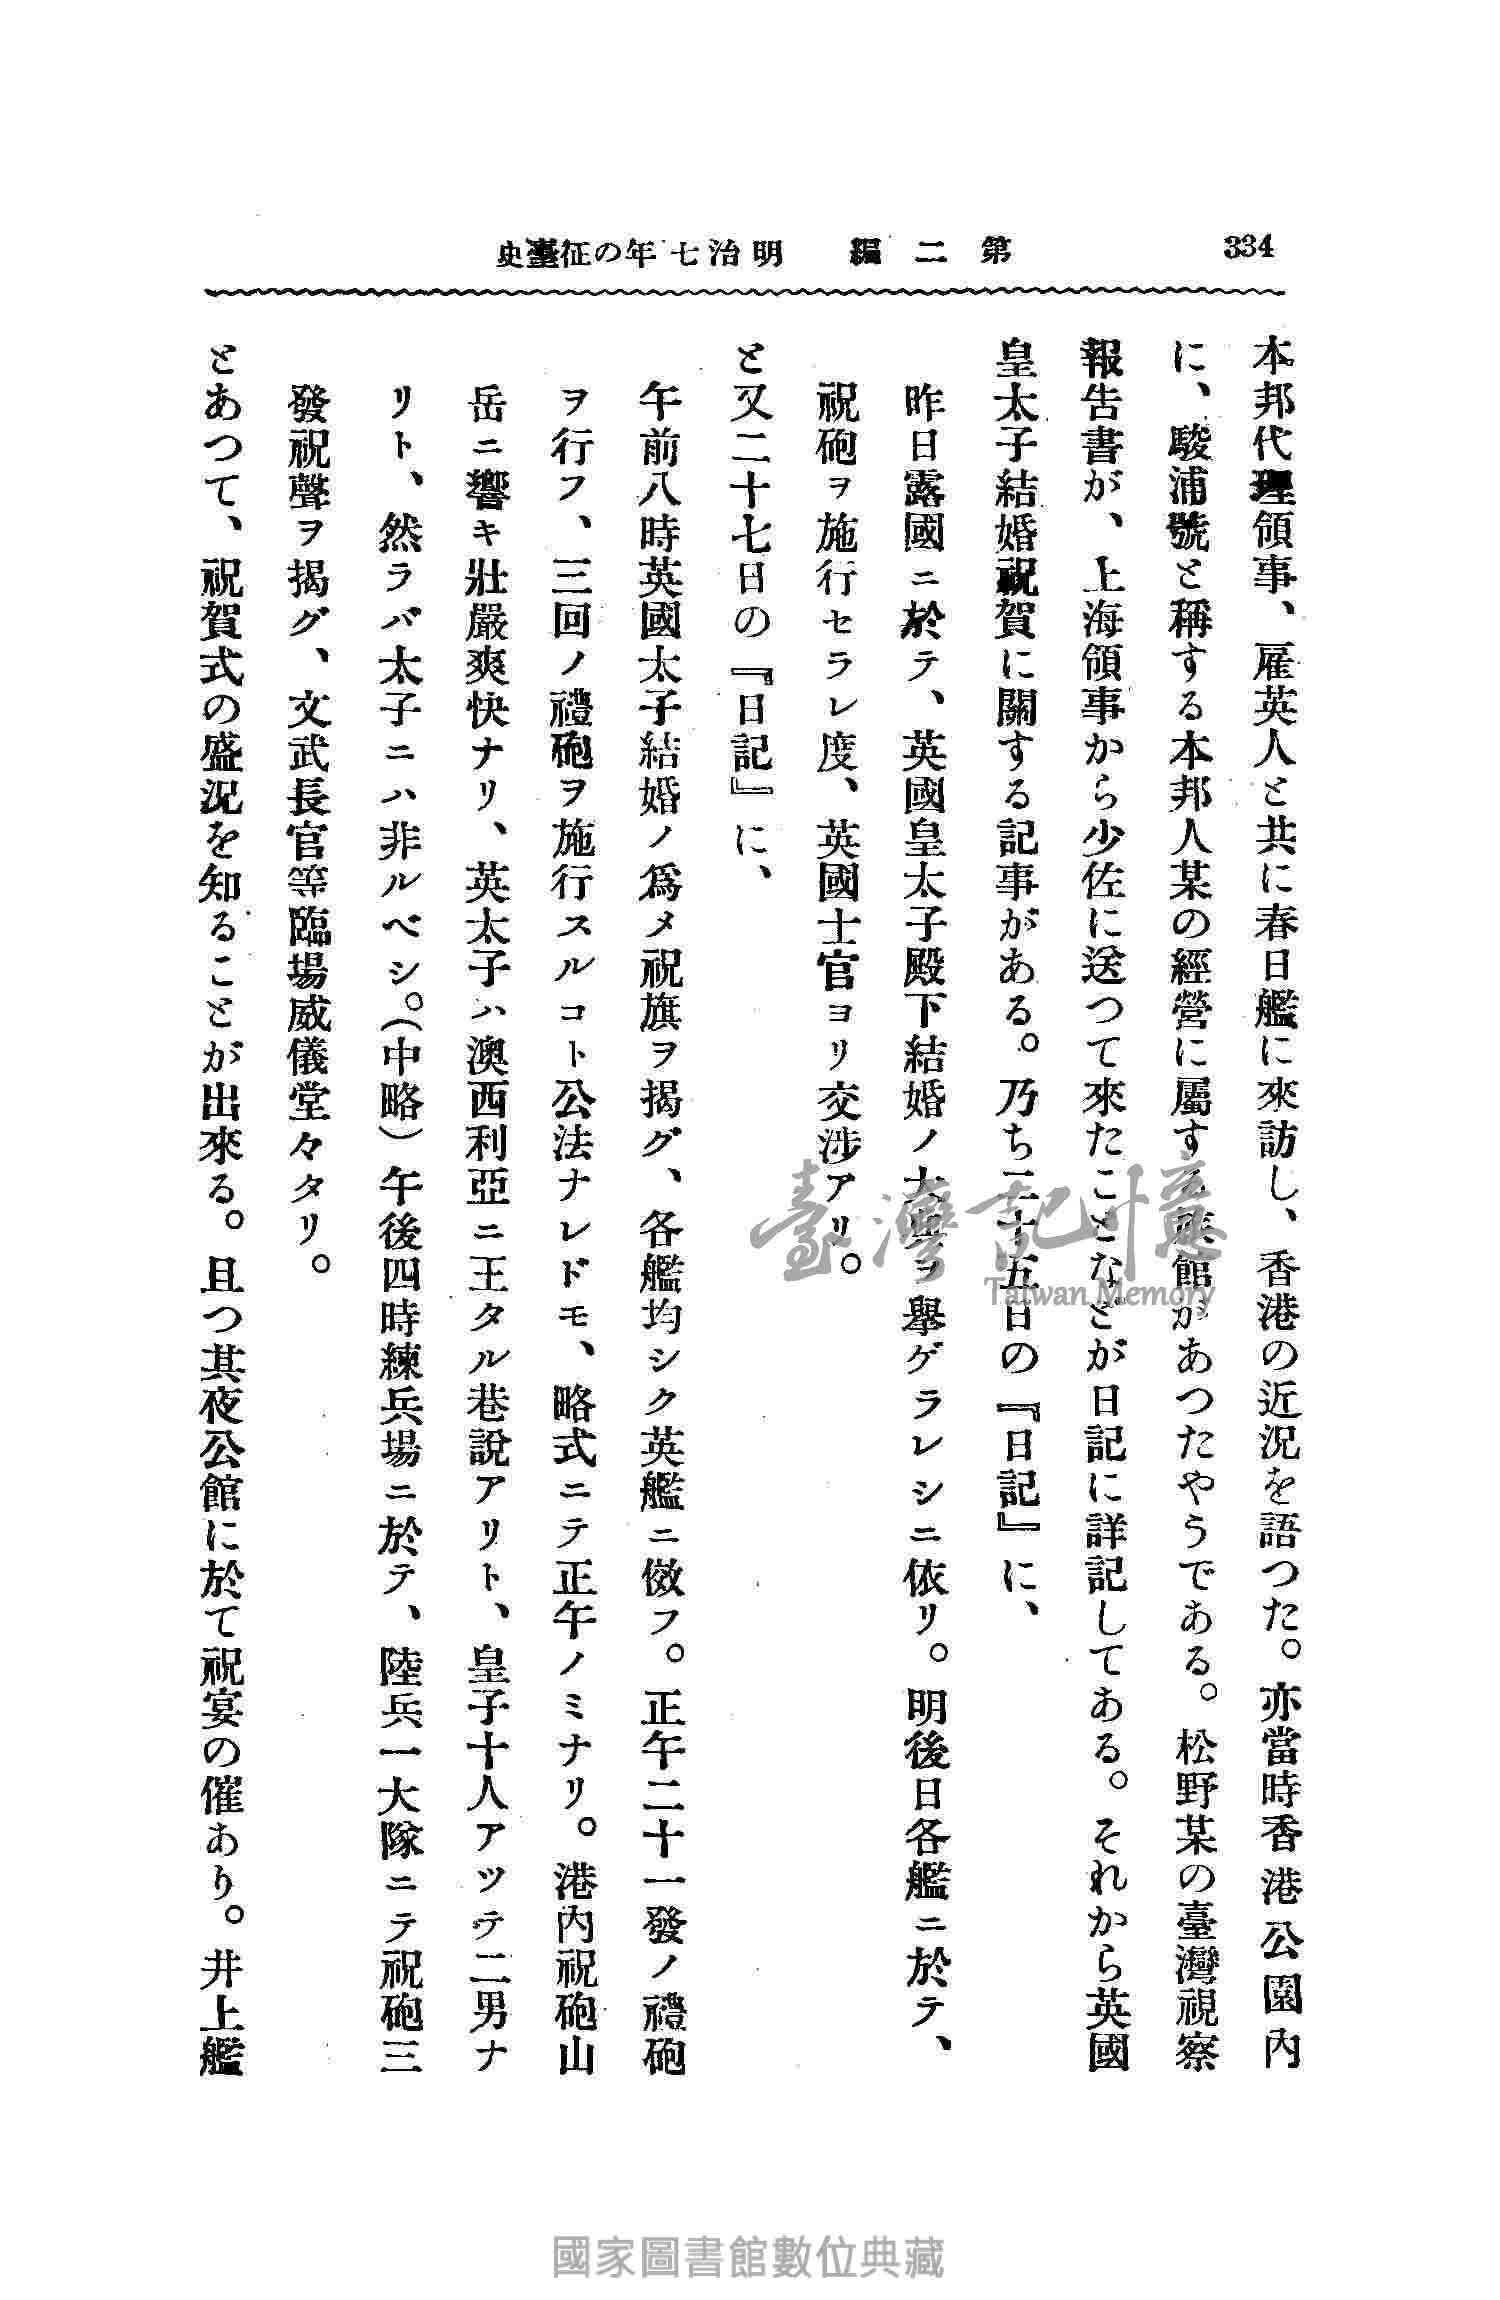 334
第二編　明治七年の征臺史
本邦代理領事、雇英人と共に春日艦に來訪し、香港の近況を語つた。亦當時香港公園內
に、駿浦號と稱する本邦人某の經營に屬する旅館があつたやうである。松野某の臺灣視察
報告書が、上海領事から少佐に送つて來たことなどが日記に詳記してある。それから英國
皇太子結婚祝賀に關する記事がある。乃ち二十五日の『日記』に、
昨日露國ニ於テ、英國皇太子殿下結婚ノ大典ヲ擧ゲラレシニ依リ。明後日各艦ニ於テ、
祝砲ヲ施行セラレ度、英國士官ヨリ交涉アリ。
と又二十七日の『日記』に、
午前八時英國太子結婚ノ爲メ祝旗ヲ揭グ、各艦均シク英艦ニ傚フ。正午二十一發ノ禮砲
ヲ行フ、三回ノ禮砲ヲ施行スルコト公法ナレドモ、略式ニテ正午ノミナリ。港內祝砲山
岳ニ響キ壯嚴爽快ナリ、英太子ハ澳西利亞ニ王タル巷說アリト、皇子十人アツテ二男ナ
リト、然ラバ太子ニハ非ルベシ。（中略）午後四時練兵場ニ於テ、陸兵一大隊ニテ祝砲三
發祝聲ヲ揭グ、文武長官等臨場威儀堂々タリ。
とあつて、祝賀式の盛況を知ることが出來る。且つ其夜公館に於て祝宴の催あり。井上艦
臺灣記憶
Taiwan Memory
國家圖書館數位典藏